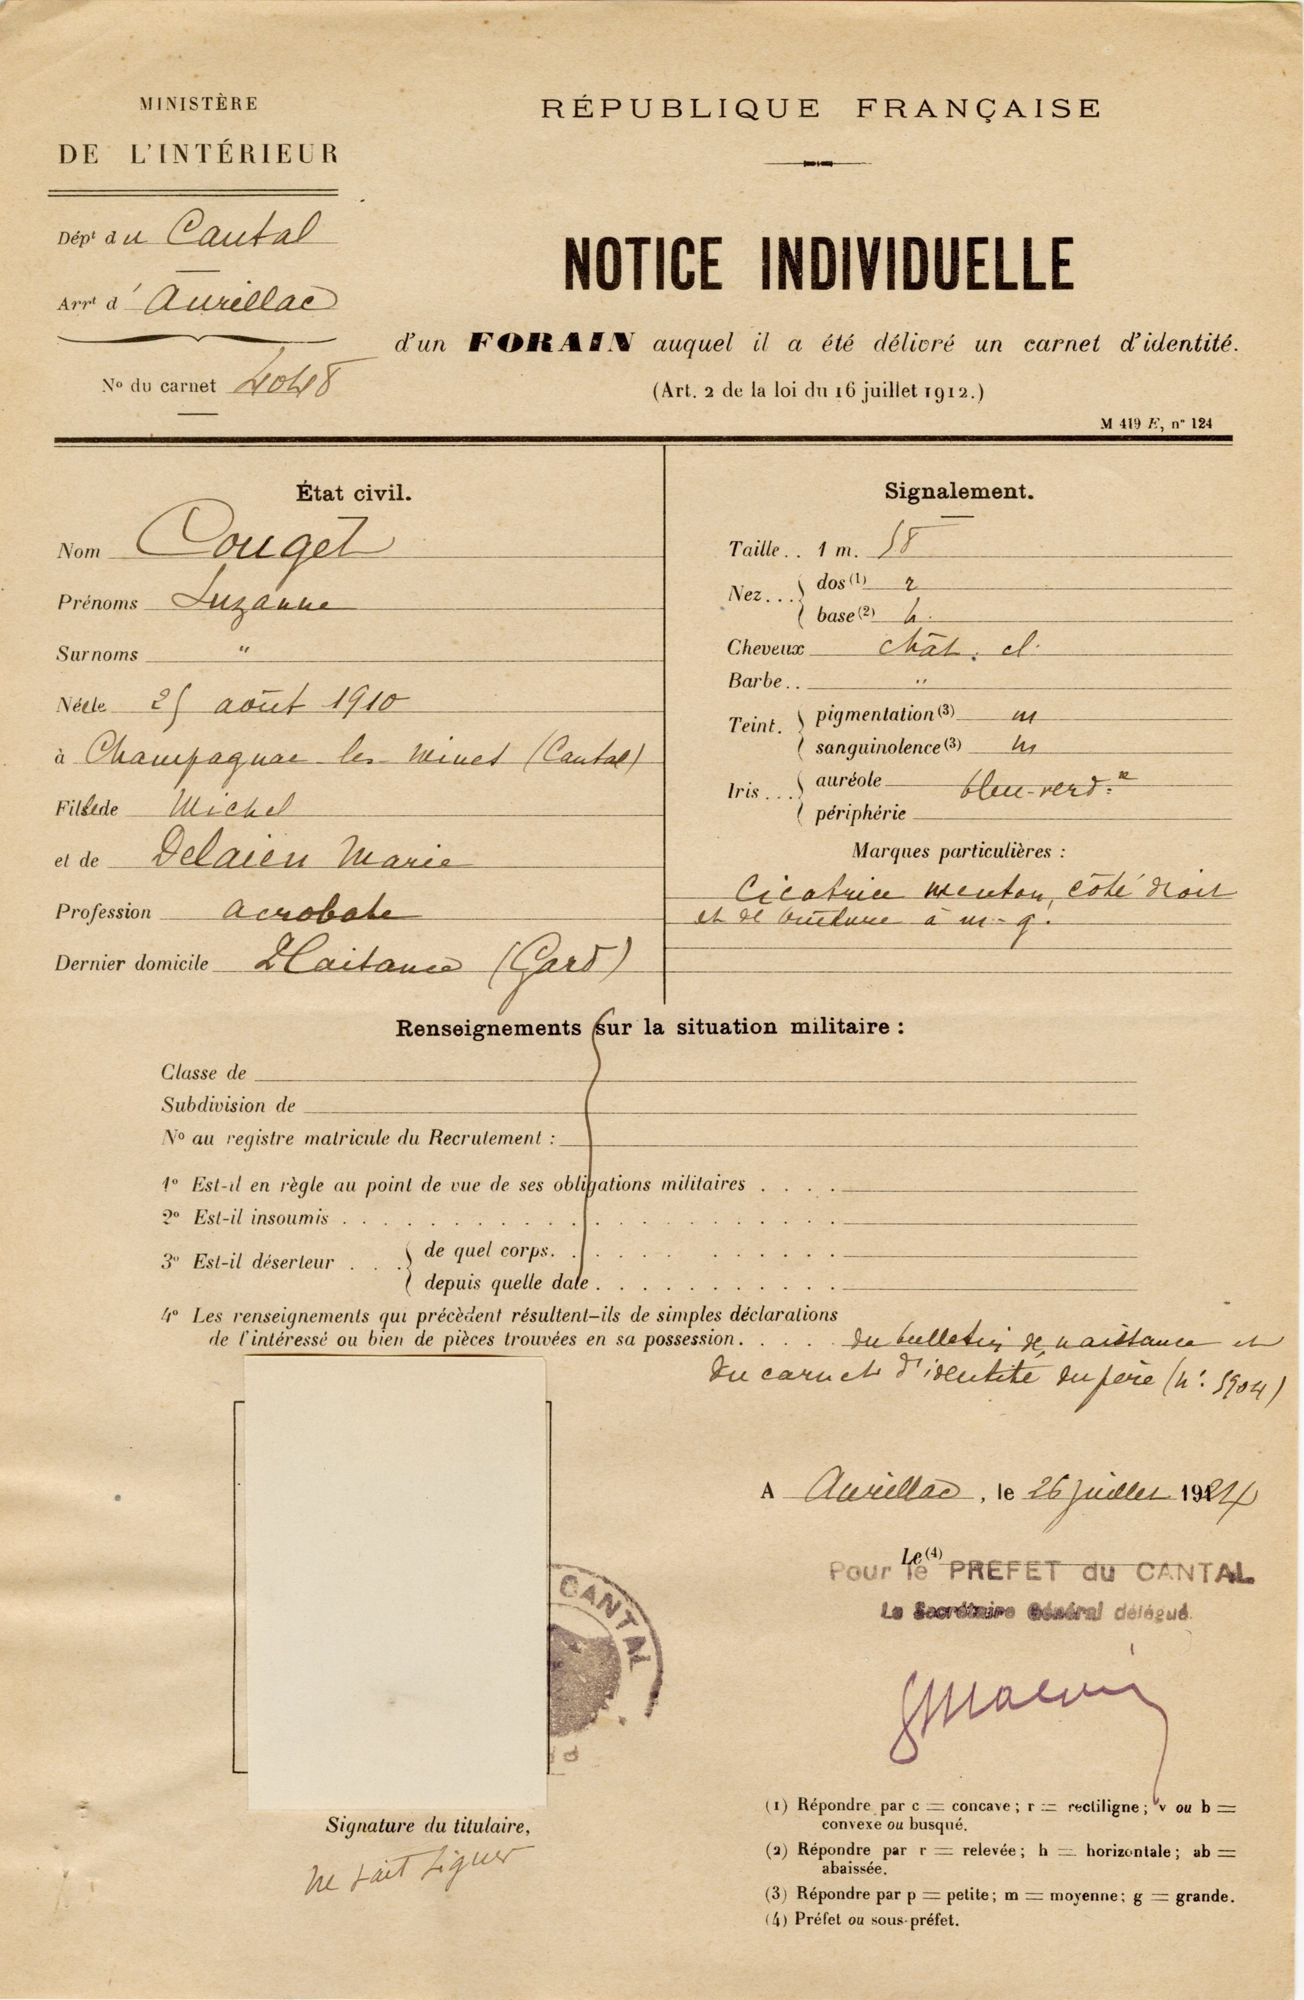 MINISTÈRE
DE L'INTÉRIEUR
Dépt du Cantal
Arrt d'Aurillac
No du carnet 4048
RÉPUBLIQUE FRANÇAISE
NOTICE INDIVIDUELLE
d'un FORAIN auquel il a été délivré un carnet d'identité.
(Art. 2 de la loi du 16 juillet 1912.)
M 419 E, n° 124
État civil.
Nom Couget
Prénoms Suzanne
Surnoms "
Née le 25 août 1910
à Champagnac les mines (Cantal)
Fille de Michel
et de Delaien Marie
Profession acrobate
Dernier domicile (Gard)
Signalement.
Taille.. 1 m. 58
Nez... dos(1) r
base(2) h.
Cheveux chât. cl.
Barbe.. "
Teint. pigmentation(3) m
sanguinolence(3) m
Iris... auréole bleu-verd.re
périphérie
Marques particulières :
Cicatrice menton, côté droit
et de brûlure à m. g.
Renseignements sur la situation militaire :
Classe de
Subdivision de
No au registre matricule du Recrutement :
1° Est-il en règle au point de vue de ses obligations militaires . . . .
2° Est-il insoumis . . . .
3° Est-il déserteur . . . de quel corps. . .
depuis quelle date . . .
4° Les renseignements qui précèdent résultent-ils de simples déclarations
de l'intéressé ou bien de pièces trouvées en sa possession. . . . . du bulletin de naissance et
du carnet d'identité du père (n° 5904)
A Aurillac, le 26 juillet 1924
Le(4)
Pour le PREFET du CANTAL
Le Secrétaire Général délégué
CANTAL
Signature du titulaire,
ne sait signer
(1) Répondre par c = concave; r = rectiligne; v ou b =
convexe ou busqué.
(2) Répondre par r = relevée; h = horizontale; ab =
abaissée.
(3) Répondre par p = petite; m = moyenne; g = grande.
(4) Préfet ou sous-préfet.